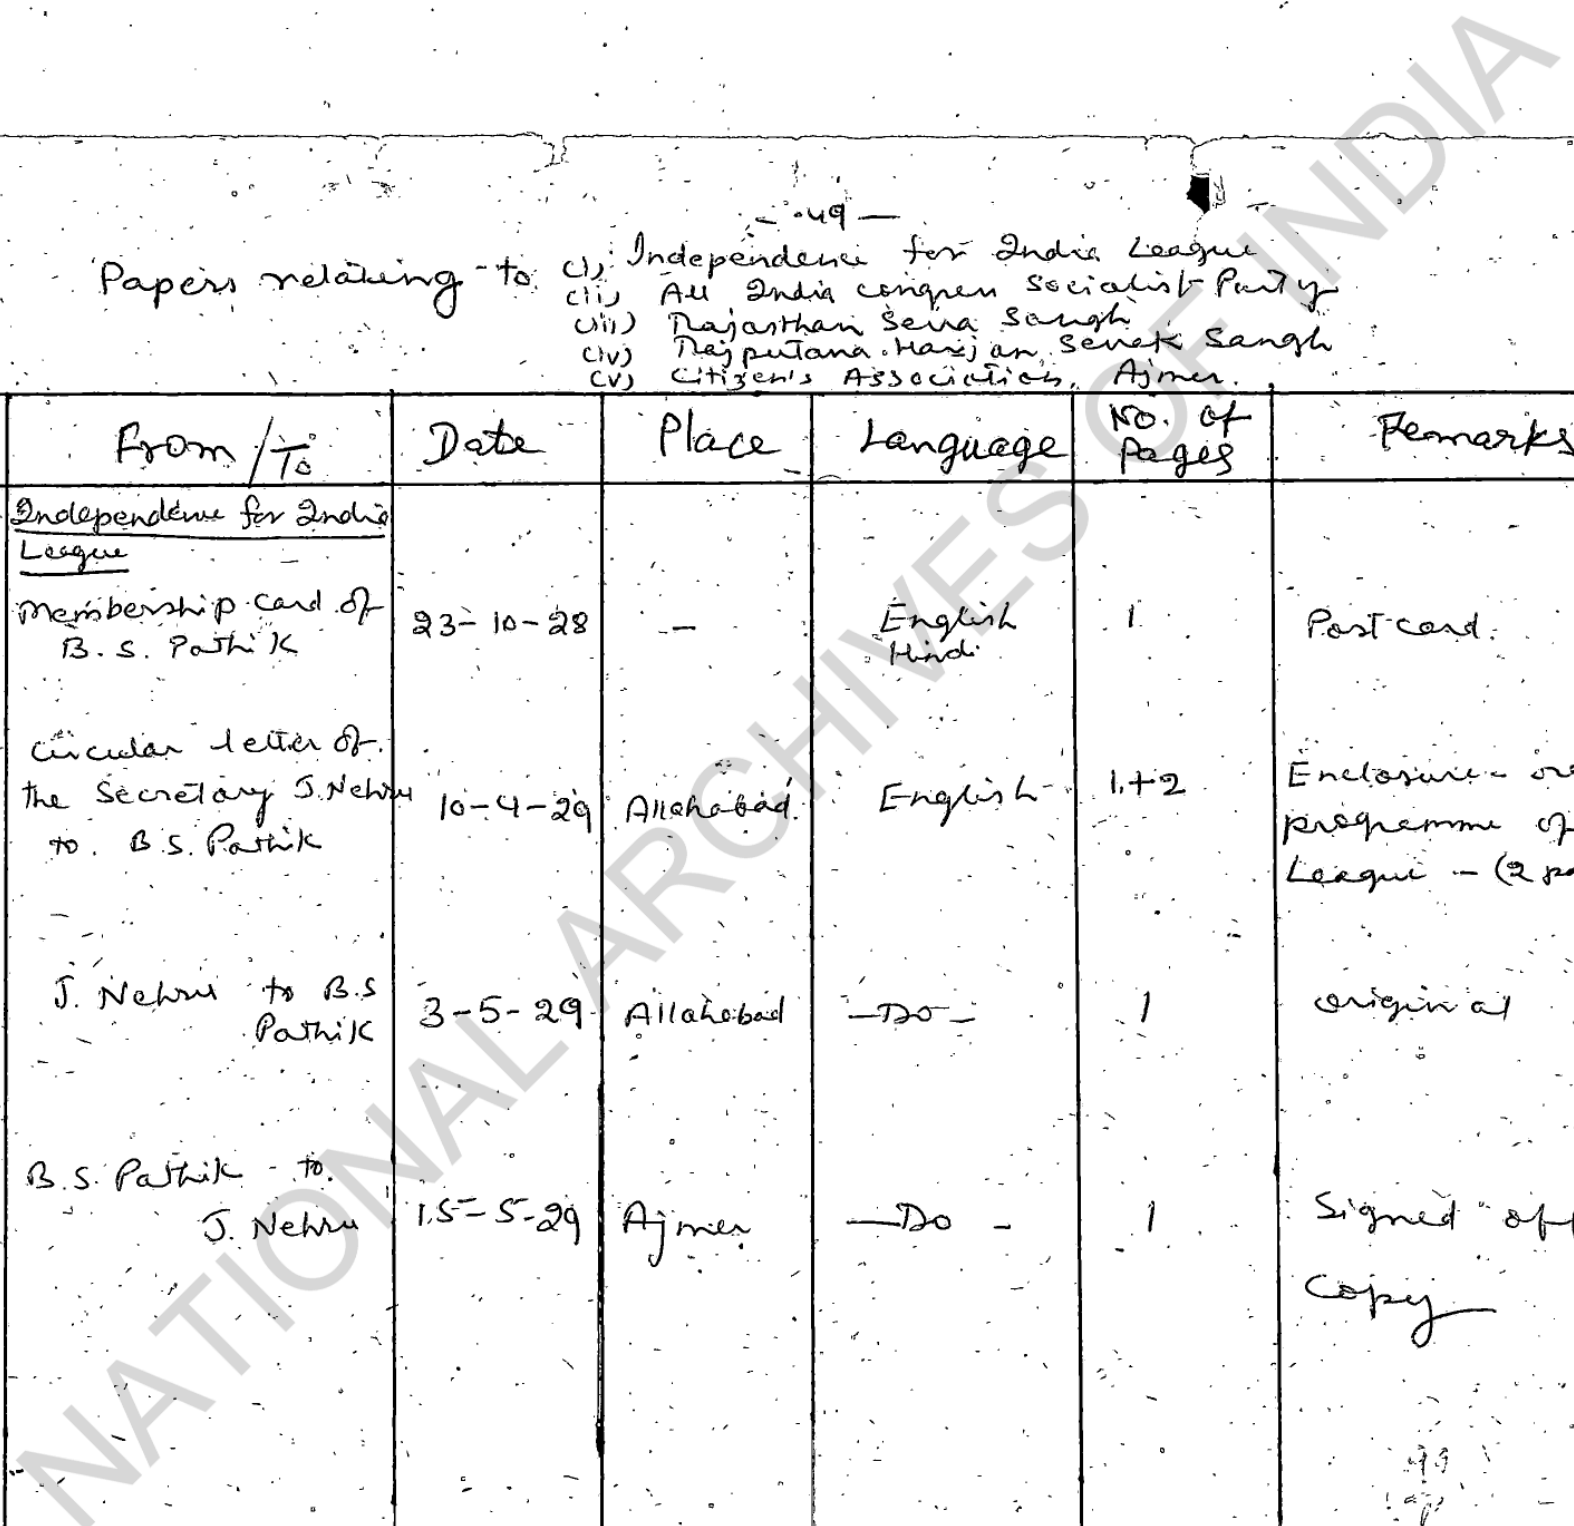 — 49 —
Papers relating to (i) Independence for India League
(ii) All India Congress Socialist Party
(iii) Rajasthan Seva Sangh
(iv) Rajputana Harijan Sevak Sangh
(v) Citizen's Association, Ajmer.
From/To Date Place Language No. of Pages Remarks
Independence for India
League
Membership card of
B. S. Pathik 23-10-28 — English Hindi 1 Post card.
Circular letter of
the Secretary J. Nehru
to B.S. Pathik 10-4-29 Allahabad English 1+2 Enclosure -
programme
League - (2
J. Nehru to B.S
Pathik 3-5-29 Allahabad —Do— 1 original
B.S. Pathik - to
J. Nehru 15-5-29 Ajmer —Do — 1 Signed
Copy
NATIONAL ARCHIVES OF INDIA